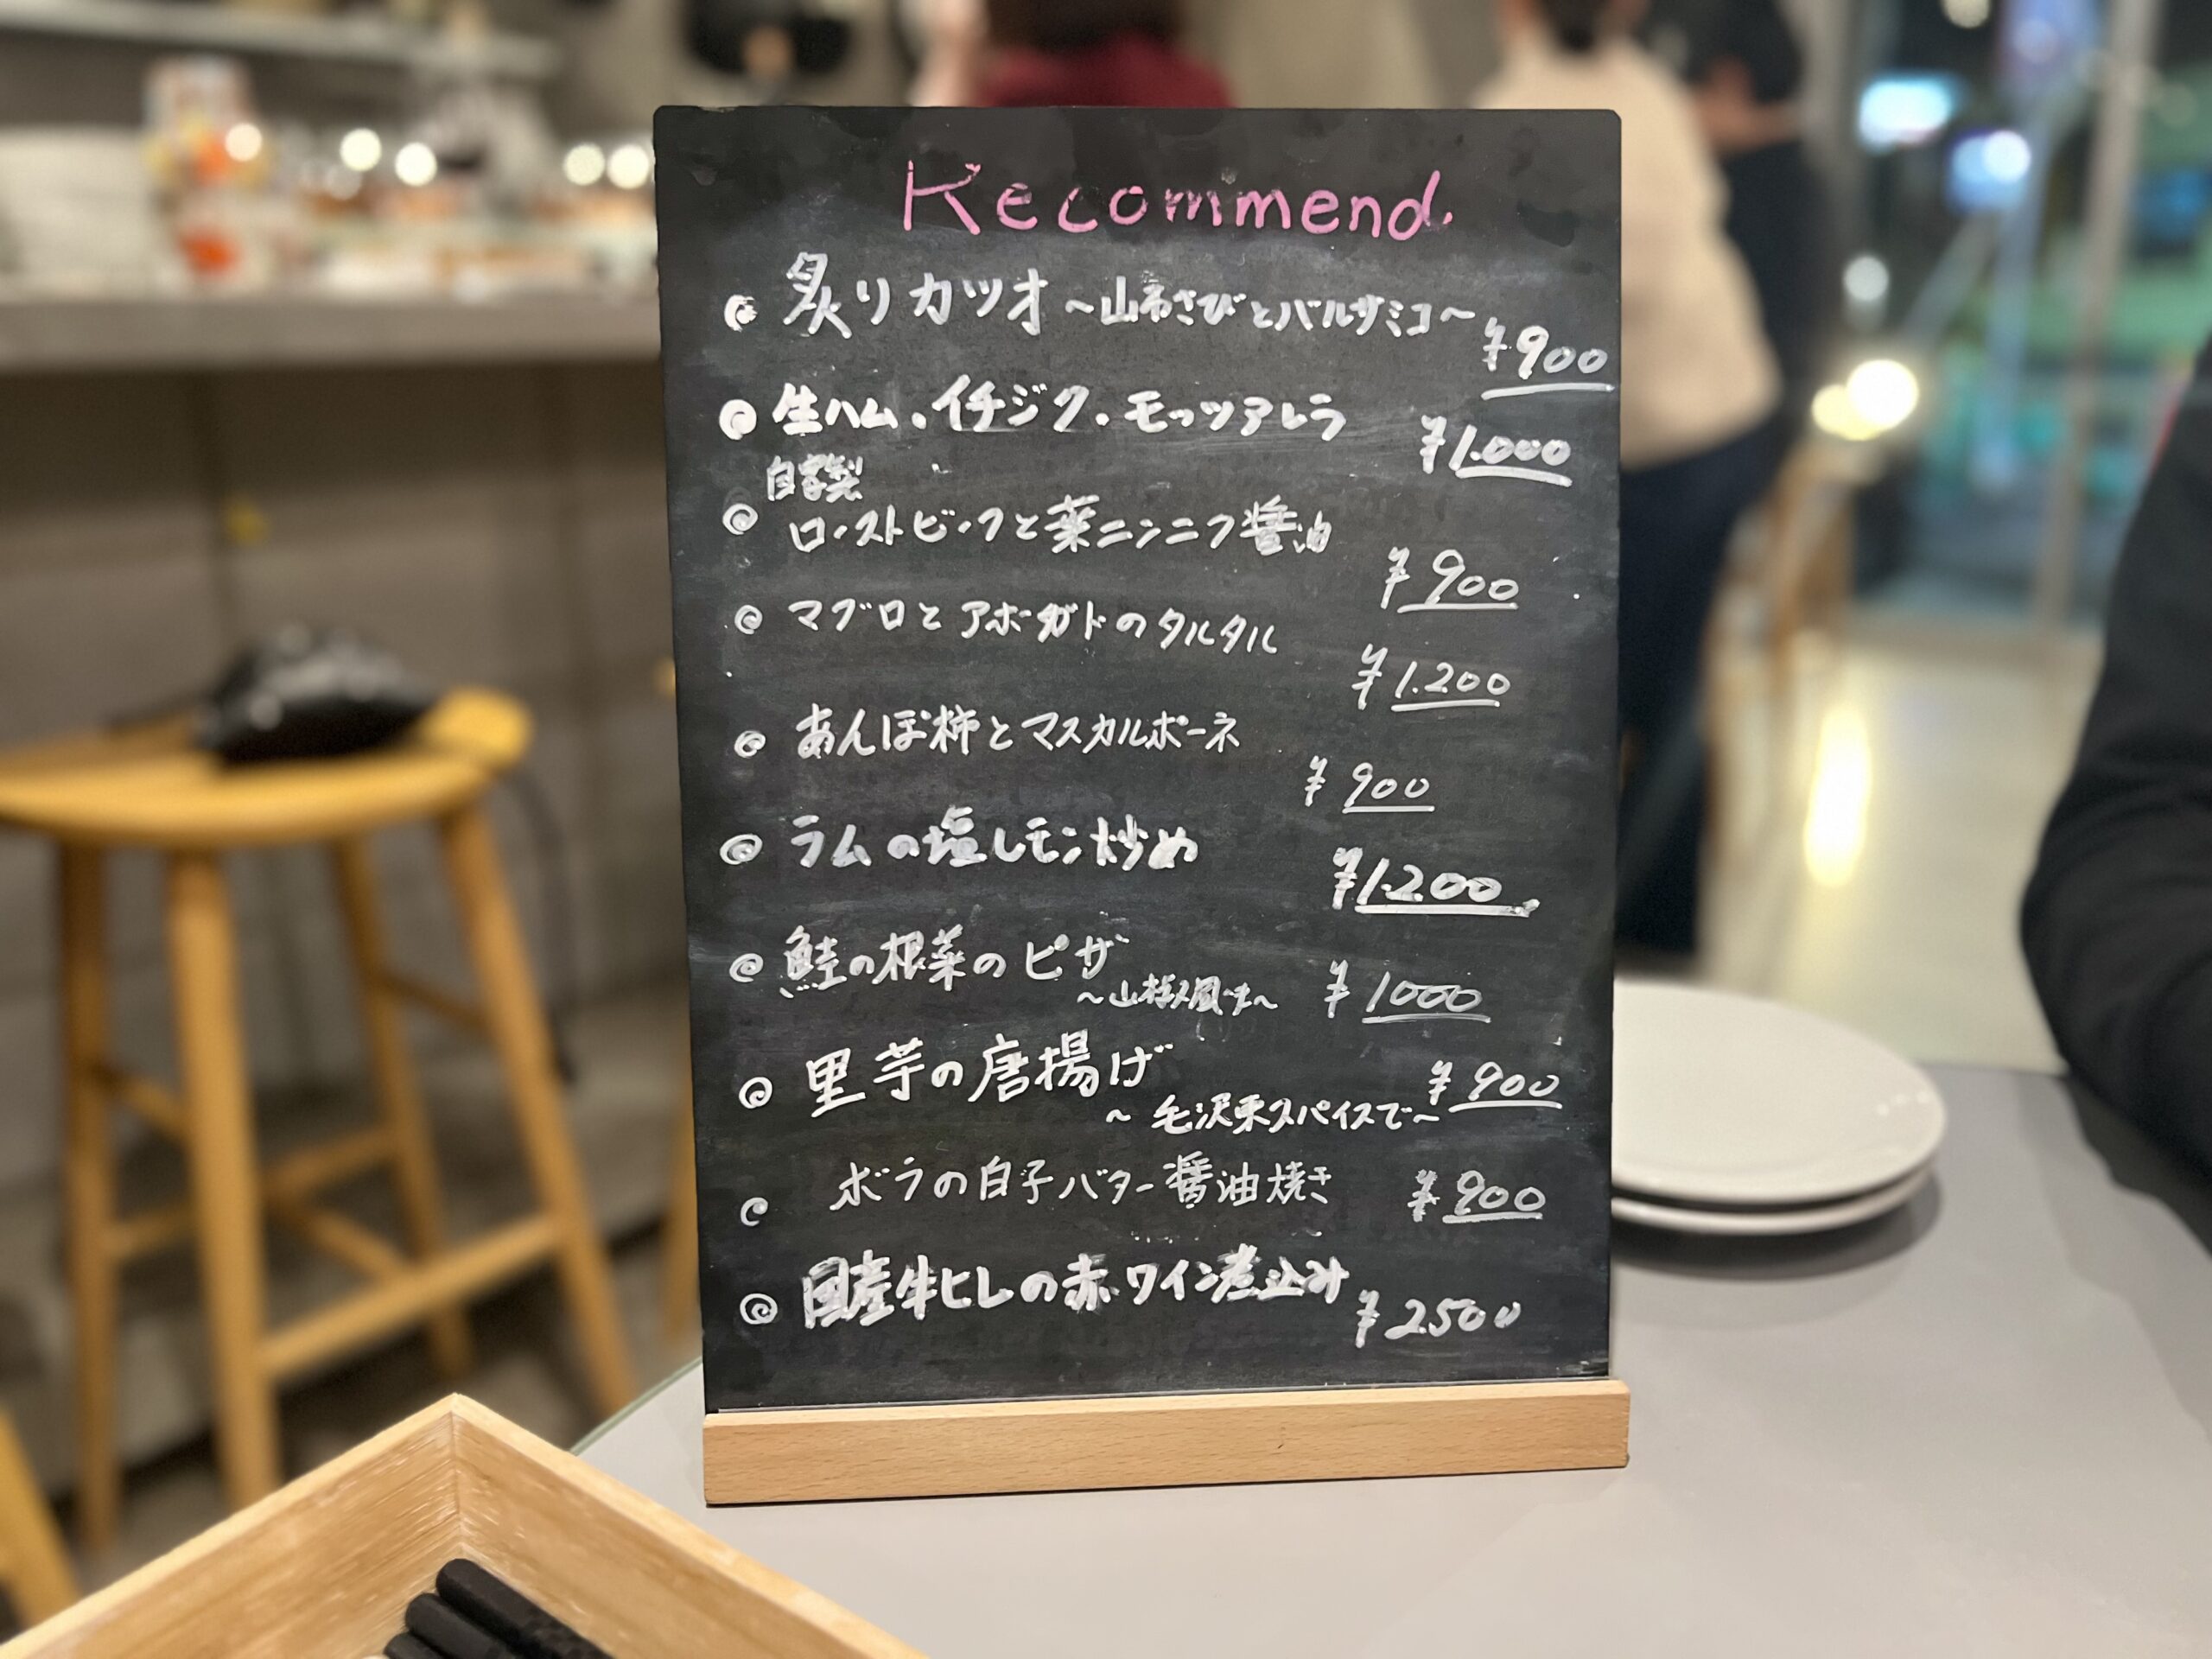 Recommend.
炙りカツオ ～山わさびとバルサミコ～
¥900
生ハム・イチジク・モッツアレラ
¥1.000
自家製
ローストビーフと葉ニンニク醤油
¥900
マグロとアボガドのタルタル
¥1.200
あんぽ柿とマスカルポーネ
¥900
ラムの塩レモン炒め
¥1.200
鮭の根菜のピザ
～山椒風味～ ¥1000
里芋の唐揚げ ¥900
～毛沢東スパイスで～
ボラの白子バター醤油焼き ¥900
国産牛ヒレの赤ワイン煮込み
¥2500